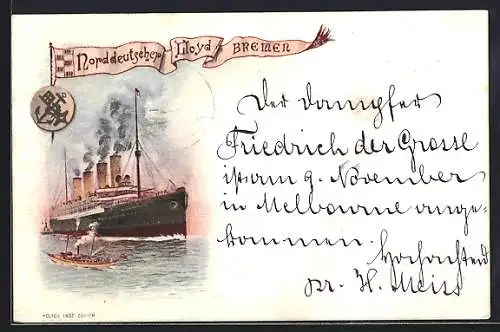 Norddeutscher Lloyd BREMEN
Der Dampfer
Friedrich der Grosse
ist am 9. November
in Melbourne ange-
kommen.
Hochachtend
pr. H. Meiss
POLYGR. INST. ZÜRICH